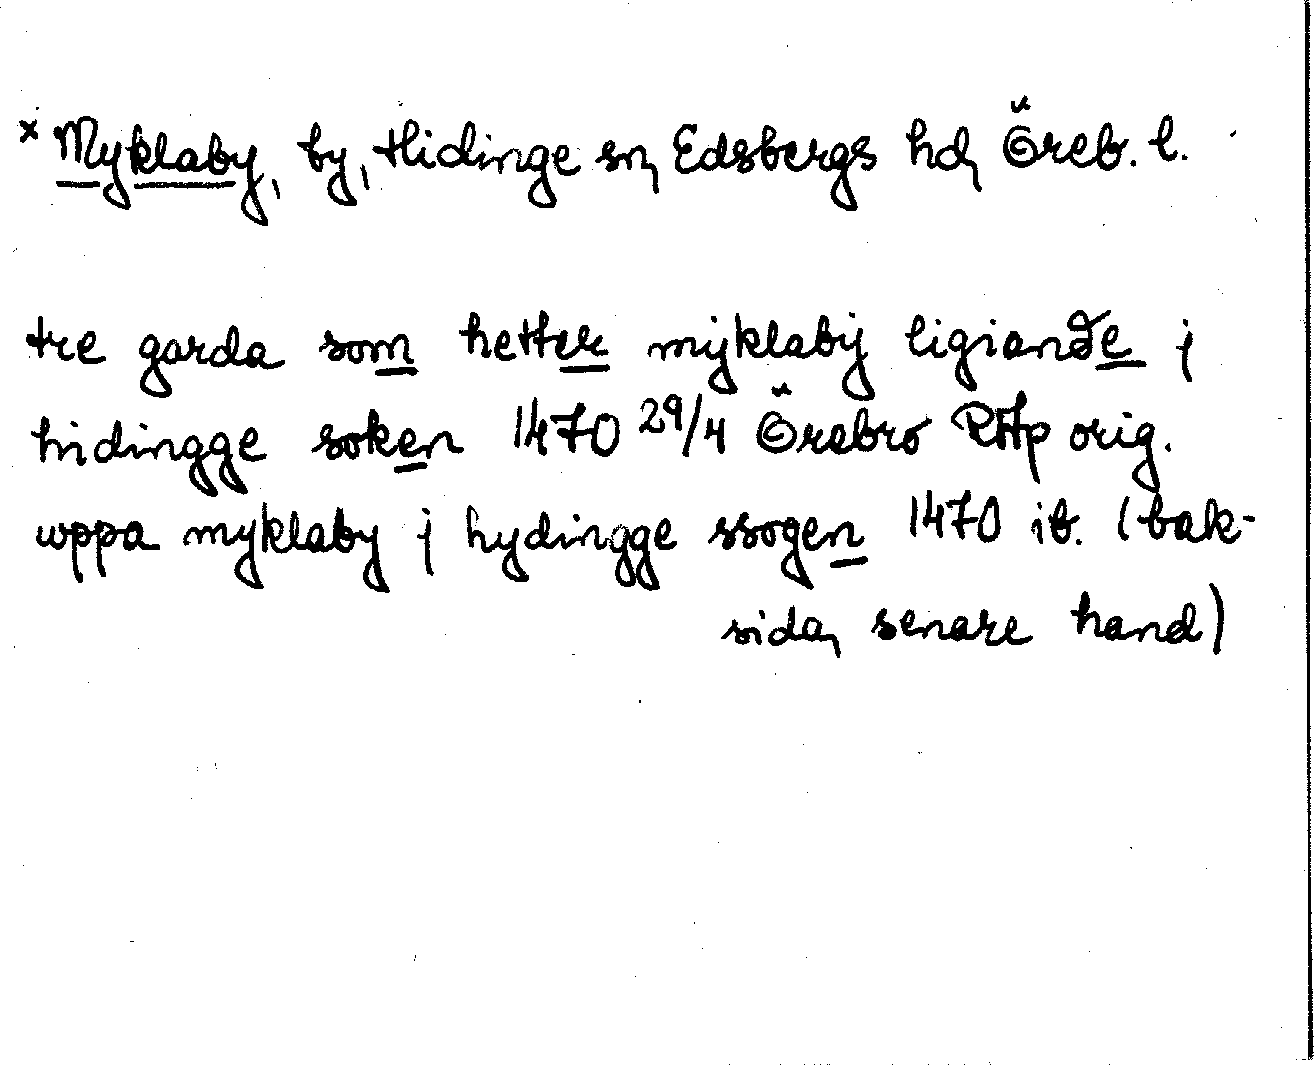 × Myklaby, by, Hidinge sn, Edsbergs hd, Öreb. l.
tre garda som hetter mÿklabÿ ligiande j
hidingge soken 1470 29/4 Örebro RAp orig.
uppa myklaby j hydingge ssogen 1470 ib. (bak-
sida, senare hand)